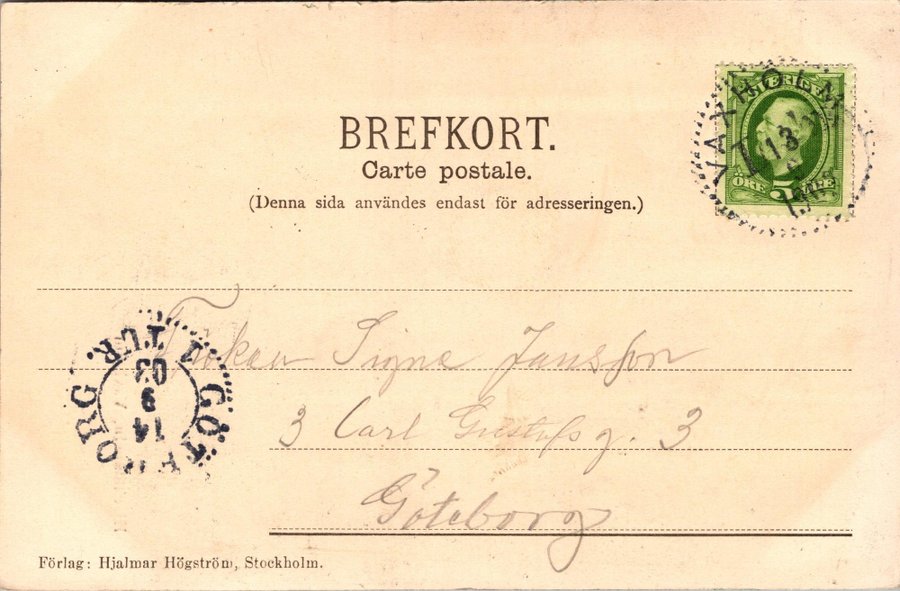 BREFKORT.
Carte postale.
(Denna sida användes endast för adresseringen.)
SVERIGE
ÖRE 5 ÖRE
VAXHOLM
13
Fröken Signe Jansson
3 Carl Gustafs g. 3
Göteborg
GÖTEBORG
1 TUR
14
9
03
Förlag: Hjalmar Högström, Stockholm.